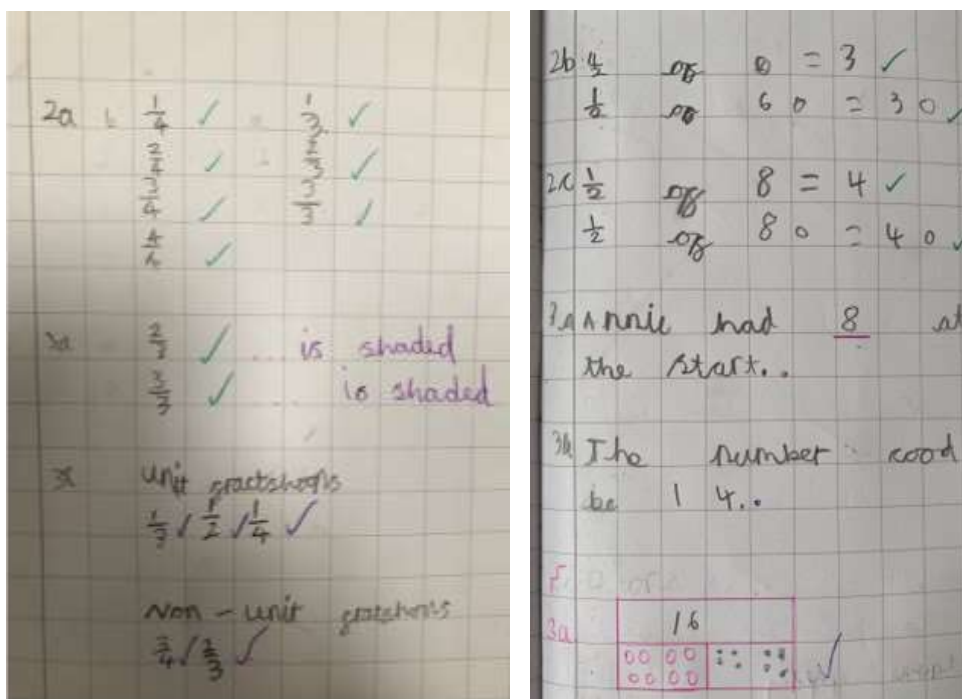 2a 1/4 ✓ 1/3 ✓
2/4 ✓ 2/3 ✓
3/4 ✓ 3/3 ✓
4/4 ✓
3a 2/3 ✓ ... is shaded
3/3 ✓ ... is shaded
unit fractshons
1/3 / 1/2 / 1/4 ✓
Non - unit fratshons
3/4 / 2/3 ✓
2b 1/2 of = 3 ✓
1/2 of 60 = 30 ✓
2c 1/2 of 8 = 4 ✓
1/2 of 80 = 40 ✓
3a Annie had 8 at
the start..
3b The number cood
be 14..
3a 16